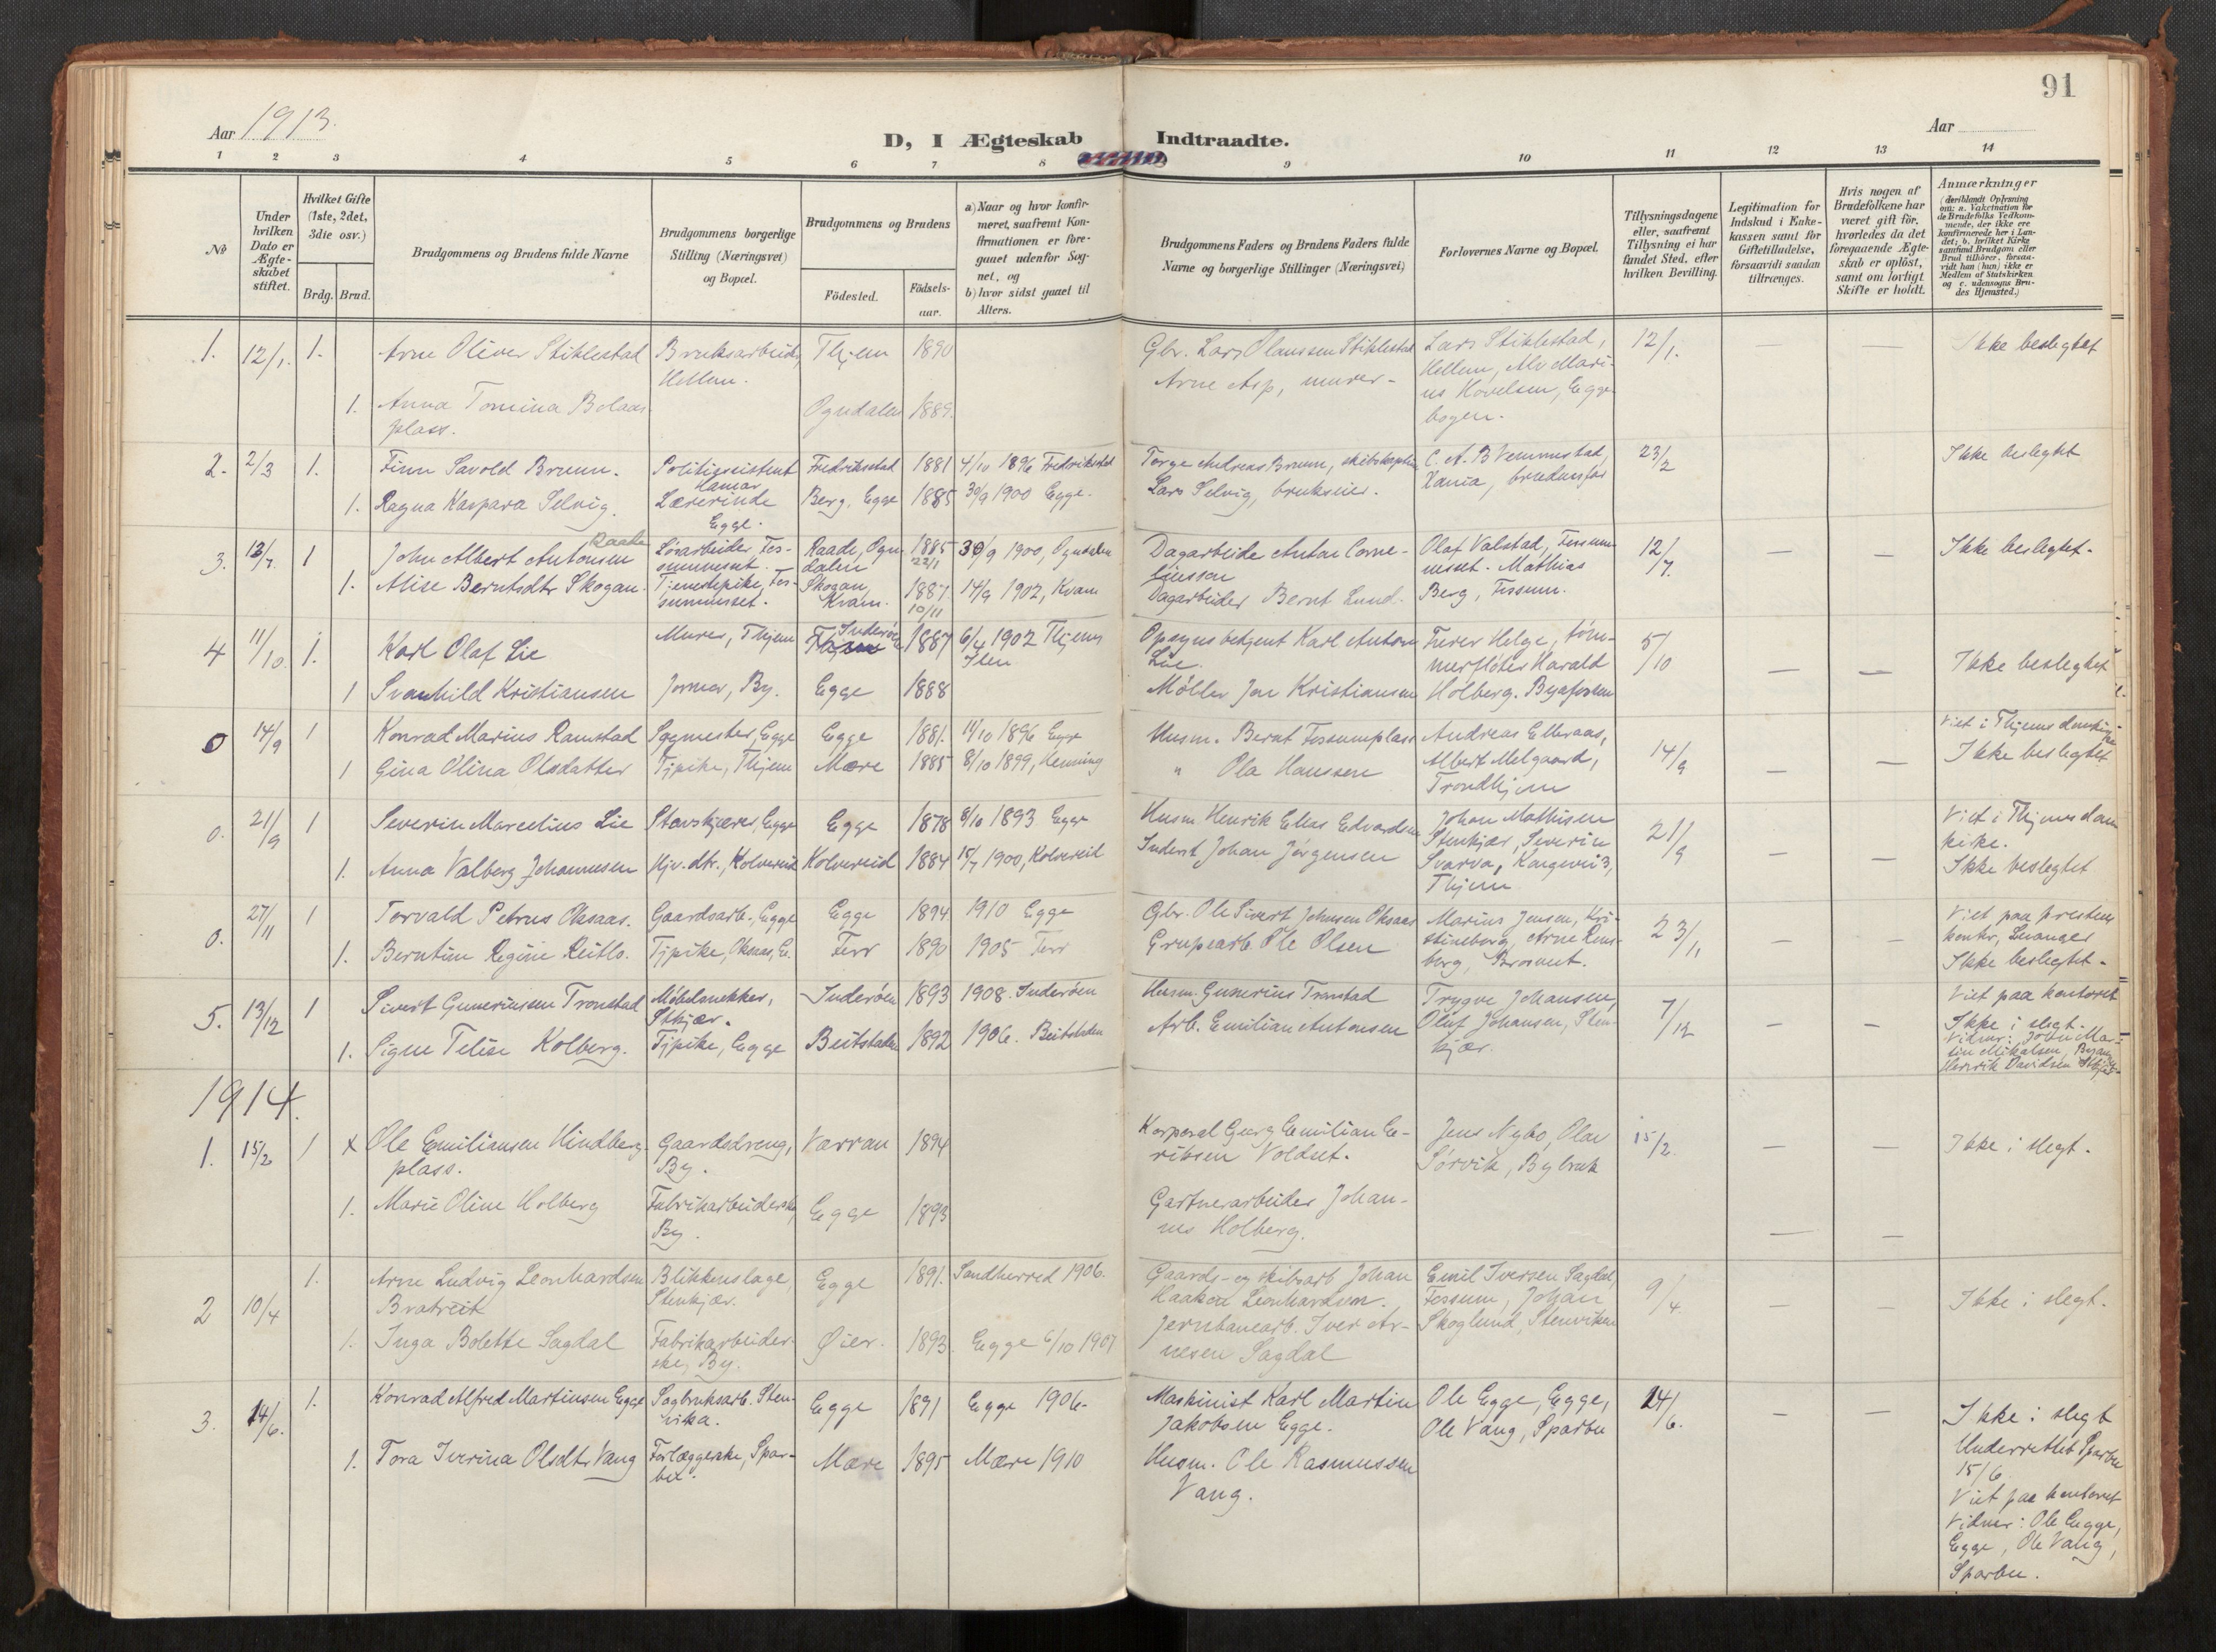 91
Aar 1913.
Aar
D, I Ægteskab Indtraadte.
1 2 3 4 5 6 7 8 9 10 11 12 13 14
No
Under hvilken Dato er Ægteskabet stiftet.
Hvilket Gifte (1ste, 2det, 3die osv.)
Brdg. Brud.
Brudgommens og Brudens fulde Navne
Brudgommens borgerlige Stilling (Næringsvei) og Bopæl.
Brudgommens og Brudens
Födested.
Födsels-aar.
a) Naar og hvor konfirmeret, saafremt Konfirmationen er foregaaet udenfor Sognet, og
b) hvor sidst gaaet til Alters.
Brudgommens Faders og Brudens Faders fulde Navne og borgerlige Stillinger (Næringsvei)
Forlovernes Navne og Bopæl.
Tillysningsdagene eller, saafremt Tillysning ei har fundet Sted, efter hvilken Bevilling.
Legitimation for Indskud i Enkekassen samt for Giftetilladelse, forsaavidt saadan tiltrænges.
Hvis nogen af Brudefolkene har været gift för, hvorledes da det foregaaende Ægteskab er oplöst, samt om lovligt Skifte er holdt.
Anmærkninger
(deriblandt Oplysning om: a. Vakcination for de Brudefolks Vedkommende, der ikke ere konfirmerede her i Landet; b. hvilket Kirkesamfund Brudgom eller Brud tilhörer, forsaavidt han (hun) ikke er Medlem af Statskirken og c. udensogns Brudes Hjemsted.)
1. 12/1. 1. Arne Oliver Stiklestad Bruksarbeider, Thjem 1890 Gbr. Lars Olaussen Stiklestad Lars Stiklestad, 12/1. — — Ikke beslegtet
Hellem. Arne Asp, murer - Hellem, Alv Mari-
1. Anna Tomina Bolaas Ogndalen 1889. us Hovelsen, Egge
plass. bogen.
2. 2/3 1. Finn Savold Bruun. Politiassistent Fredriksstad 1881 4/10 1896 Fredriksstad Torge Andreas Bruun, skibskaptein C. A. B Vemmestad, 23/2 Ikke beslegtet
Hamar
1. Ragna Kaspara Selvig. Lærerinde Berg, Egge 1885 30/9 1900 Egge. Lars Selvig, brukseier. Xania, brudens far
Egge.
3. 13/7. 1 John Albert Antonsen Raade Løsarbeider, Fos- Raade, Ogn- 1885 30/9 1900, Ogndalen Dagarbeider Anton Corne- Olaf Valstad, Fossum 12/7. — — Ikke beslegtet.
sumneset. dalen 22/1 liussen neset. Mathias
1. Alise Berntsdtr Skogan. Tjenestepike, Fos- Skogan, 1887. 14/9 1902, Kvam Dagarbeider Bernt Lund. Berg, Fossum.
sumneset. Kvam. 10/11
4 11/10. 1. Karl Olaf Lie Murer, Thjem Inderøen 1887 6/4 1902 Thjems Opsynsbetjent Karl Anton Helge, töm- 5/10 — — Ikke beslegtet
Ilen Lie. merfløter Harald
1 Svanhild Kristiansen By. Egge 1888 Møller Jon Kristiansen Holberg. Byafossen
0 14/9 1 Konrad Marius Ramstad Sagmester, Egge Egge 1881. 11/10 1896 Egge Husm. Bernt Fossumplass Andreas Elveraas, 14/9 — — Viet i Thjems domkirke
1 Gina Olina Olsdatter Tjpike, Thjem Mære 1885 8/10 1899, Henning " Ola Hanssen Albert Melgaard, Ikke beslegtet
Trondhjem
0. 21/9 1 Severin Marcelius Lie Stavskjærer, Egge Egge 1878 8/10 1893 Egge Husm Henrik Elias Edvardsen Johan Mathisen 21/9 — — Viet i Thjems dom
1. Anna Valberg Johannesen Hjv. dtr., Kolvereid Kolvereid 1884 15/7 1900, Kolvereid Inderst Johan Jørgensen Stenkjær, Severin kirke.
Svarva, Kongevei 3, Ikke beslegtet
Thjem
0. 27/11 1 Torvald Petrus Oksaas. Gaardsarb., Egge Egge 1894 1910 Egge Gbr. Ole Sivert Johnsen Oksaas Marius Jensen, Kri- 23/11 — — Viet paa prestens
1. Berntine Regine Reitlo. Tjpike, Oksaas, Eg. Ferr 1890 1905 Ferr Grupearb. Ole Olsen stineborg, Arne Rens- kontor, Levanger
berg, Ikke beslegtet.
5. 13/12 1 Sivert Gunerinssen Tronstad Møbelsnekker, Inderøen 1893 1908. Inderøen Husm. Gunerius Tronstad Trygve Johansen, 7/12 — — Viet paa kontoret
Stkjær. Oluf Johansen, Sten- Ikke i slegt.
1. Signe Telise Kolberg. Tjpike, Egge Beitstaden 1892 1906. Beitstaden Arb. Emilian Antonsen kjær. Vidner: John Mar-
tin Mikalsen,
Henrik Davidsen Stkjær.
1914.
1. 15/2 1 x Ole Emiliansen Hindberg- Gaardsdreng, Værran 1894 Korporal Georg Emilian E- Jens Nybo, Olav 15/2. — — Ikke i slegt.
plass. By. riksen Voldset. Sørvik, By bruk
1. Marie Oline Holberg Fabrikarbeiderske, Egge 1893 Gartnerarbeider Johan- — —
By. nes Holberg.
2 10/4 1. Arne Ludvig Leonhardsen Blikkenslager, Egge 1891. Sandherred 1906. Gaards- og skibsarb Johan Emil Iversen Sagdal, 9/4. — — Ikke i slegt.
Bratreit Stenkjær. Haakon Leonhardsen. Fossum, Johan
1. Inga Bolette Sagdal Fabrikarbeider- Øier. 1893. Egge 6/10 1907 Jernbanearb. Iver Ar- Skoglund, Stenviken
ske, By. nesen Sagdal
3. 14/6. 1. Konrad Alfred Martinsen Egge Sagbruksarb. Sten- Egge 1891 Egge 1906. Maskinist Karl Martin Ole Egge, Egge, 14/6. — — Ikke i slegt
vika. Jakobsen Egge. Ole Vang, Sparbu Underrettet Sparbu
1. Tora Iverina Olsdtr Vang Forlæggerske, Spar- Mære 1895 Mære 1910 Husm. Ole Rasmussen 15/6
bu. Vang. Viet paa kontoret
Vidner: Ole Egge,
Egge, Ole Vang,
Sparbu.